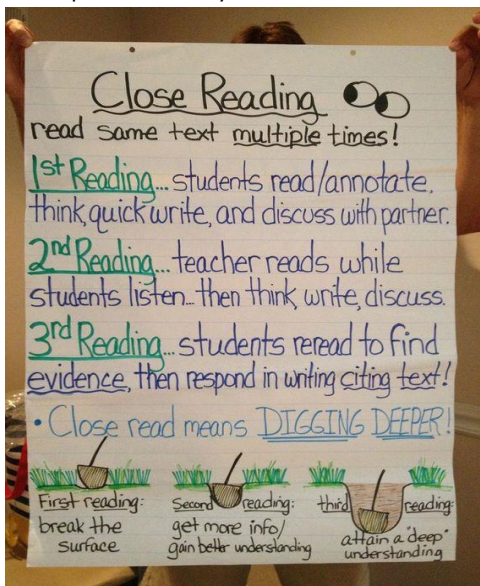 Close Reading
read same text multiple times!
1st Reading... students read/annotate,
think, quick write, and discuss with partner.
2nd Reading... teacher reads while
students listen... then think, write, discuss.
3rd Reading... students reread to find
evidence, then respond in writing citing text!
• Close read means DIGGING DEEPER!
First reading:
break the
surface
Second reading:
get more info/
gain better understanding
third reading:
attain a "deep"
understanding